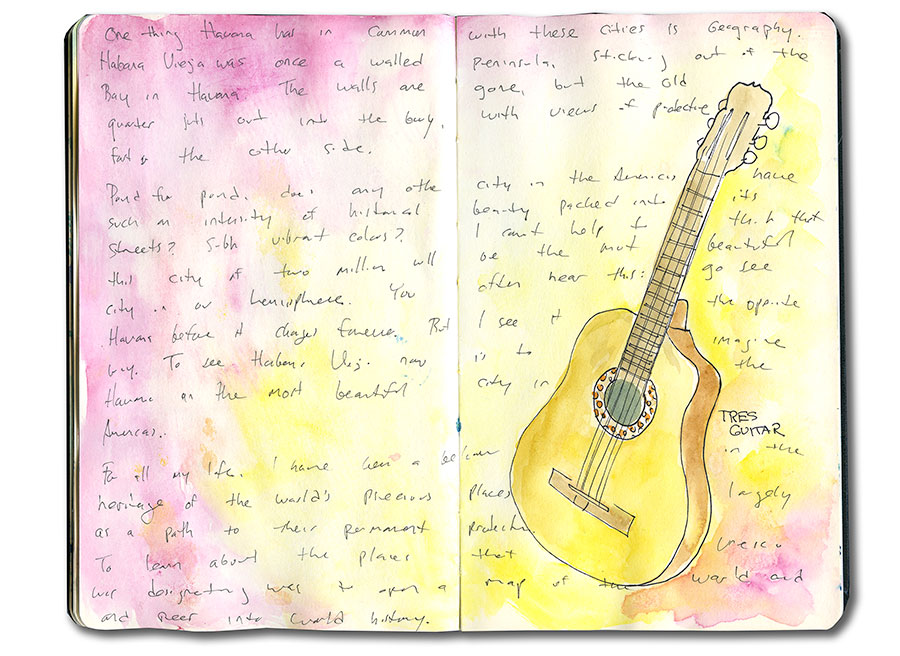 One thing Havana has in common with these cities is Geography.
Habana Vieja was once a walled peninsula, sticking out of the
Bay in Havana. The walls are gone, but the old
quarter juts out into the bay, with views of protective
forts the other side.
Pound for pound, does any other city in the Americas have
such an intensity of historical beauty packed into its
streets? Such vibrant colors? I can't help to think that
this city of two million will be the most beautiful
city in our hemisphere. You often hear this: go see
Havana before it changes forever. But I see it the opposite
To see Habana Vieja now is to imagine
Havana as the most beautiful city in the
Americas.
TRES
GUITAR
For all my life, I have been a believer in the
heritage of the world's precious places largely
as a path to their permanent protection
To learn about the places that Unesco
was designating was to open a map of the world and
and peer into world history.